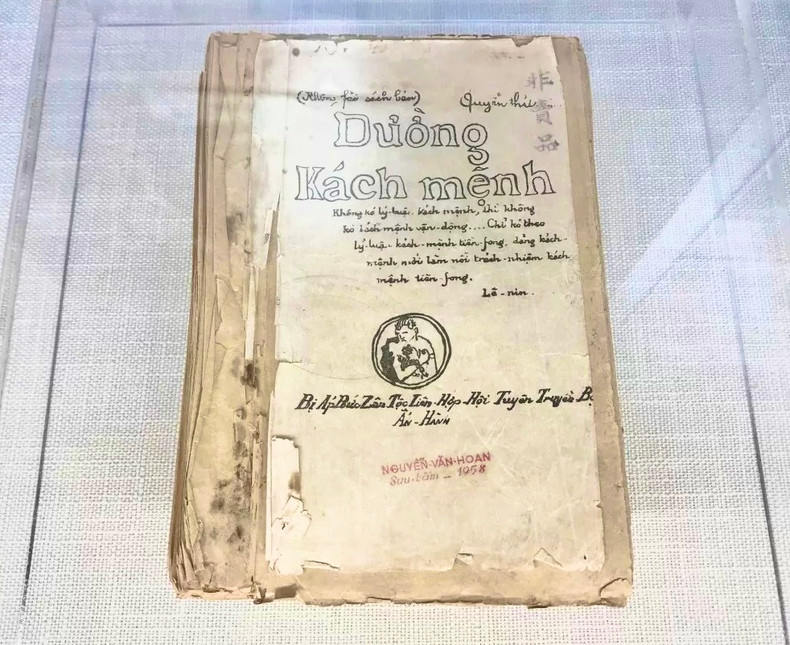 (Không fải sách bán)
Quyển thứ
非賣品
Đường
Kách mệnh
Không kó lý-luận kách mệnh, thì không
kó kách mệnh vận-động.... Chỉ kó theo
lý-luận kách-mệnh tiền-fong, đảng kách-
mệnh mới làm nổi trách-nhiệm kách
mệnh tiền-fong.
Lê-nin.
Bị Áp Bức Zân Tộc Liên-Hợp-Hội Tuyên Truyền
Ấn-Hành
NGUYỄN-VĂN-HOAN
Sưu-tầm - 1958